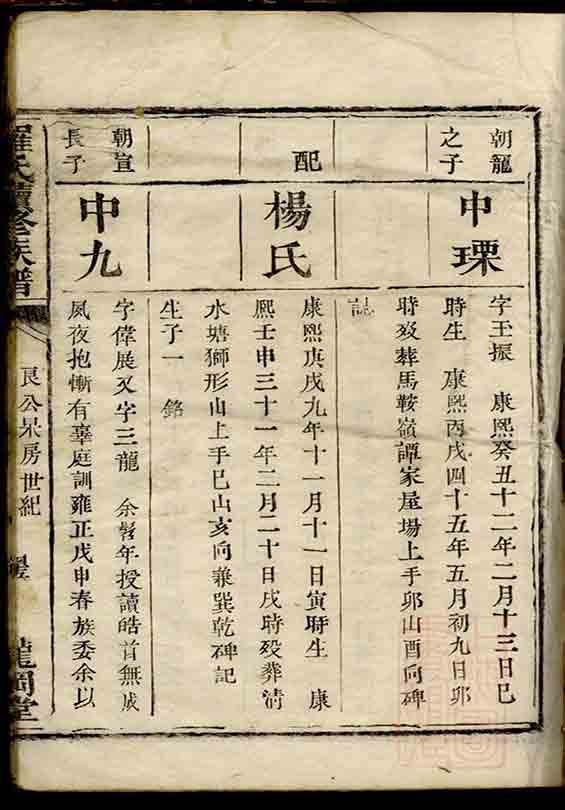 朝龍
之子
申瑮
字玉振 康熙癸丑十二年二月十三日巳
時生 康熙丙戌四十五年五月初九日卯
時歿葬馬鞍嶺譚家屋場上手卯山酉向碑
誌
配
楊氏
康熙庚戌九年十一月十一日寅時生 康
熙壬申三十一年二月二十日戌時歿葬清
水塘獅形山上手巳山亥向兼巽乾碑記
生子一 銘
朝宣
長子
申九
字偉展又字三龍 余髫年授讀皓首無成
夙夜抱慚有辜庭訓雍正戊申春族委余以
羅氏續修族譜
良公杲房世紀
龍岡堂